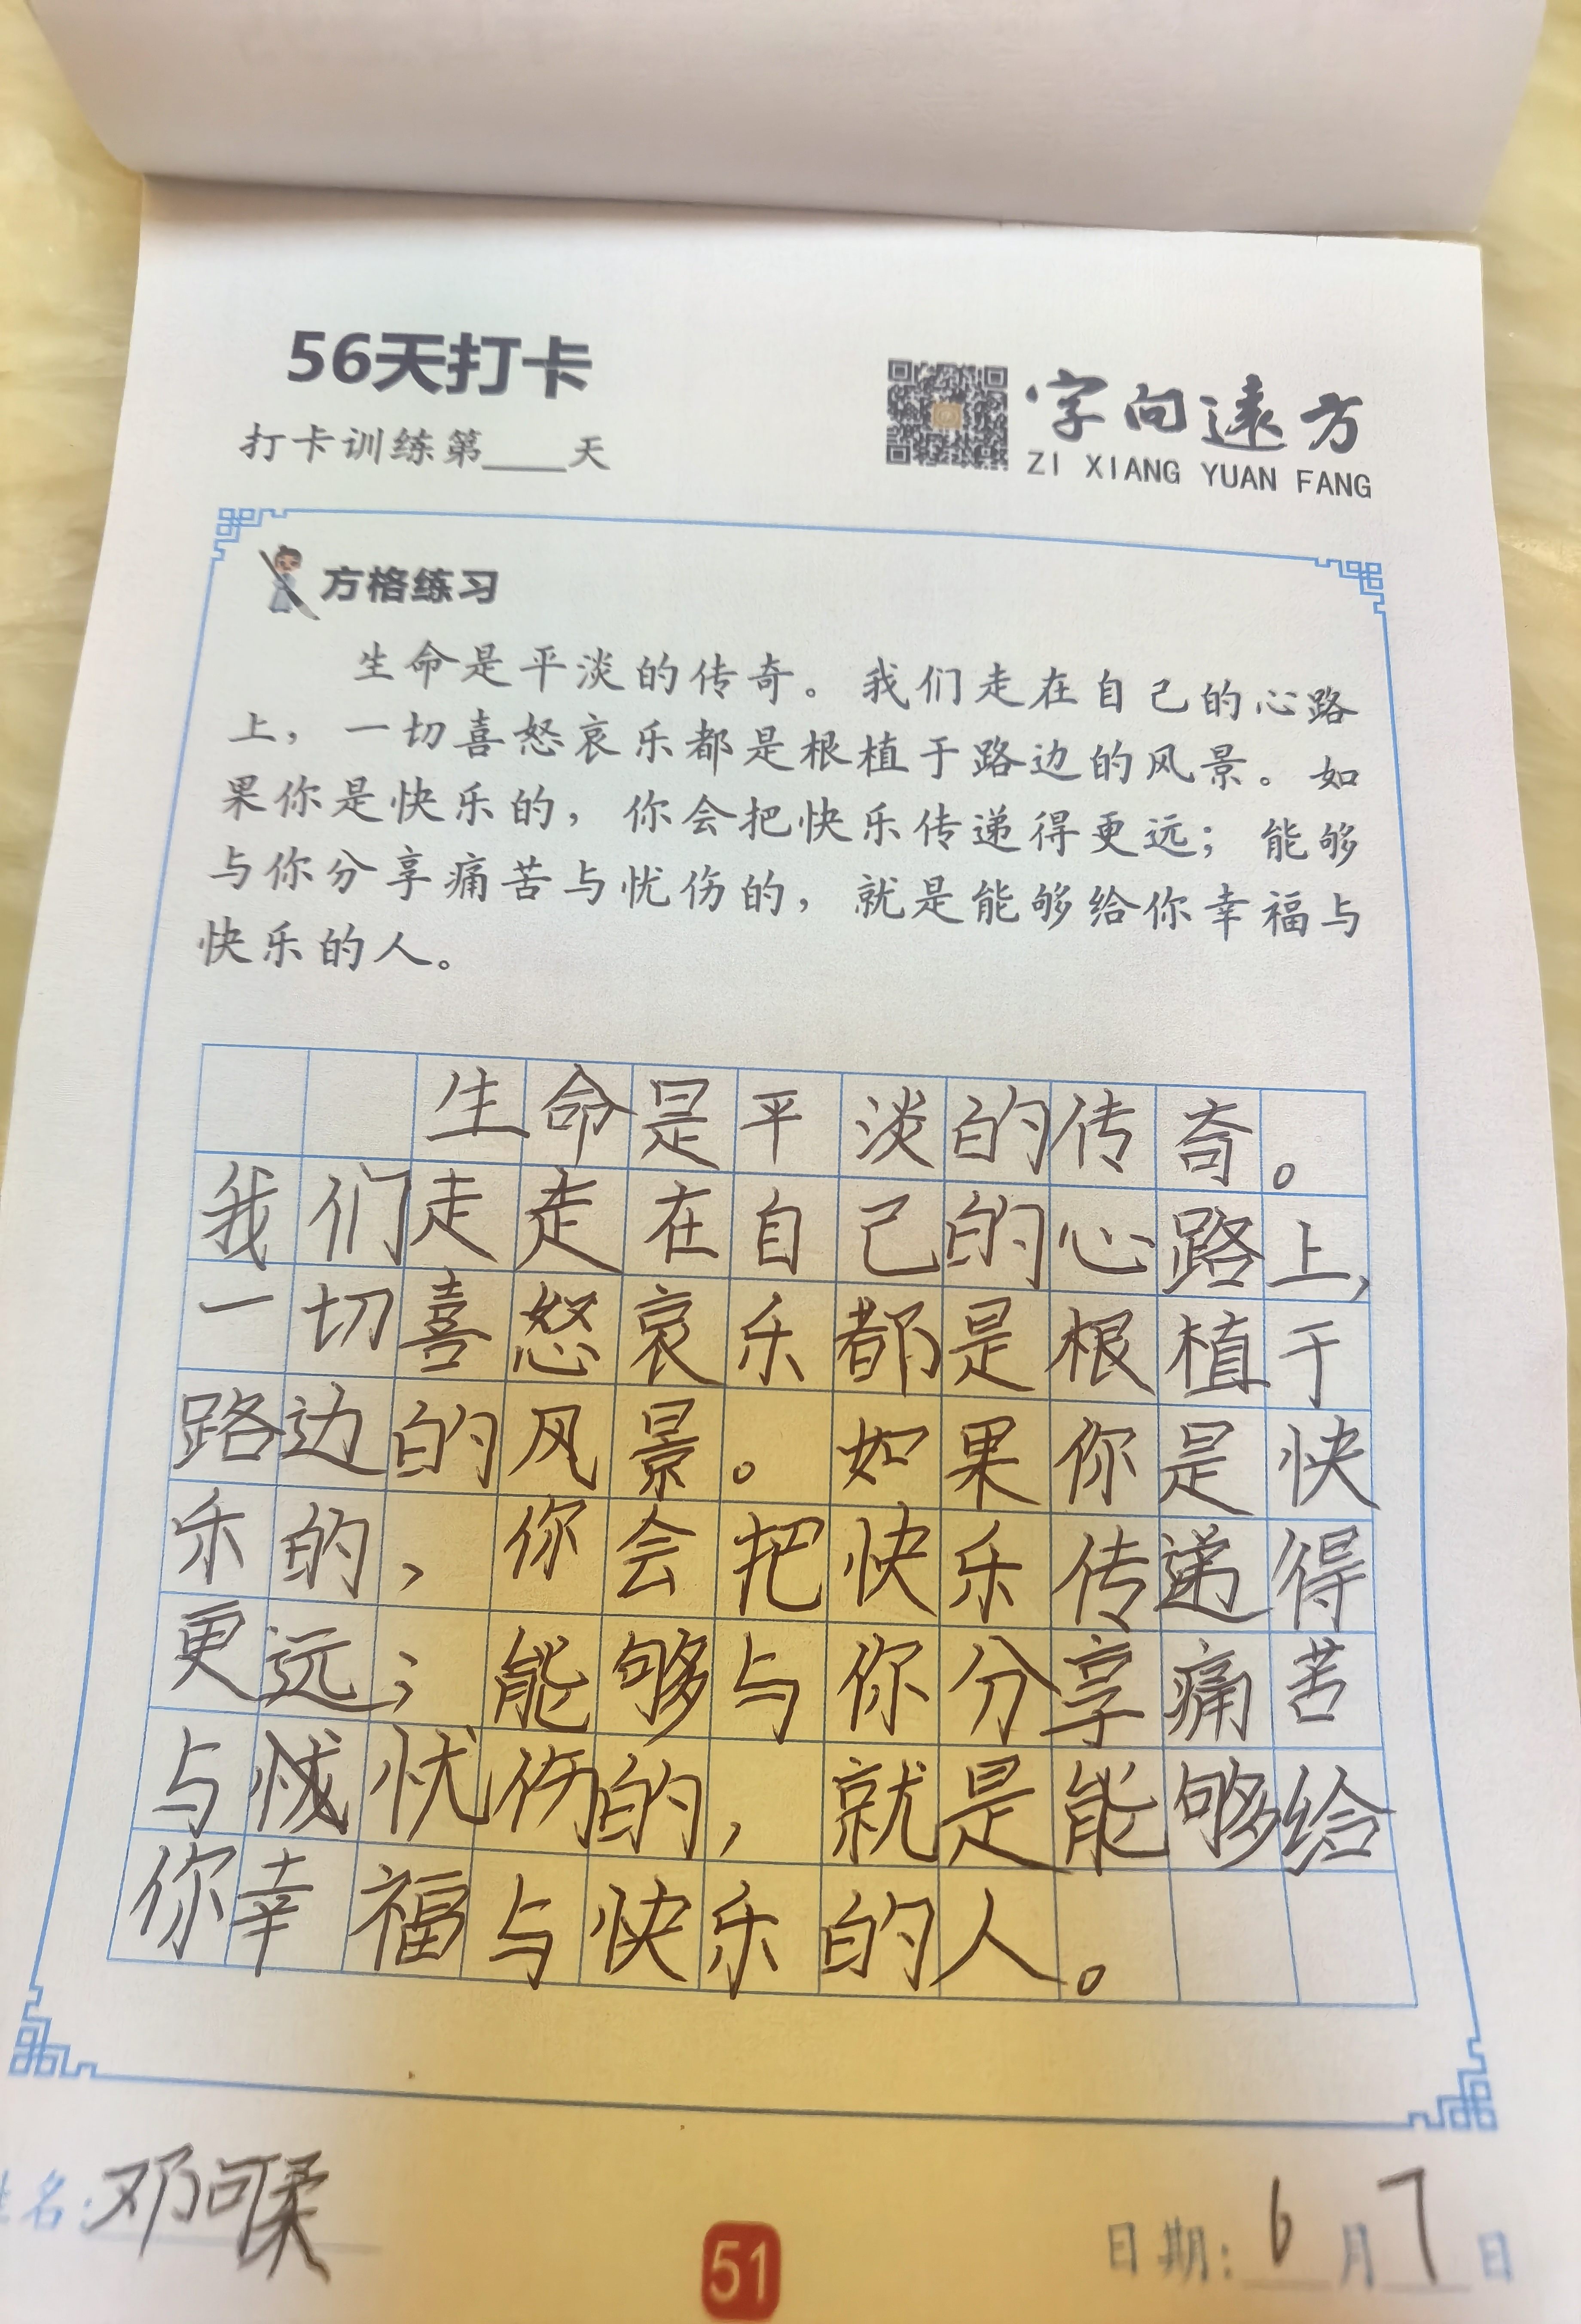 56天打卡
打卡训练第____天
字向遠方
ZI XIANG YUAN FANG
方格练习
生命是平淡的传奇。我们走在自己的心路
上，一切喜怒哀乐都是根植于路边的风景。如
果你是快乐的，你会把快乐传递得更远；能够
与你分享痛苦与忧伤的，就是能够给你幸福与
快乐的人。
生命是平淡的传奇。
我们走走在自己的心路上，
一切喜怒哀乐都是根植于
路边的风景。如果你是快
乐的，你会把快乐传递得
更远；能够与你分享痛苦
与忧伤的，就是能够给
你幸福与快乐的人。
姓名：邓可柔
51
日期：6月7日